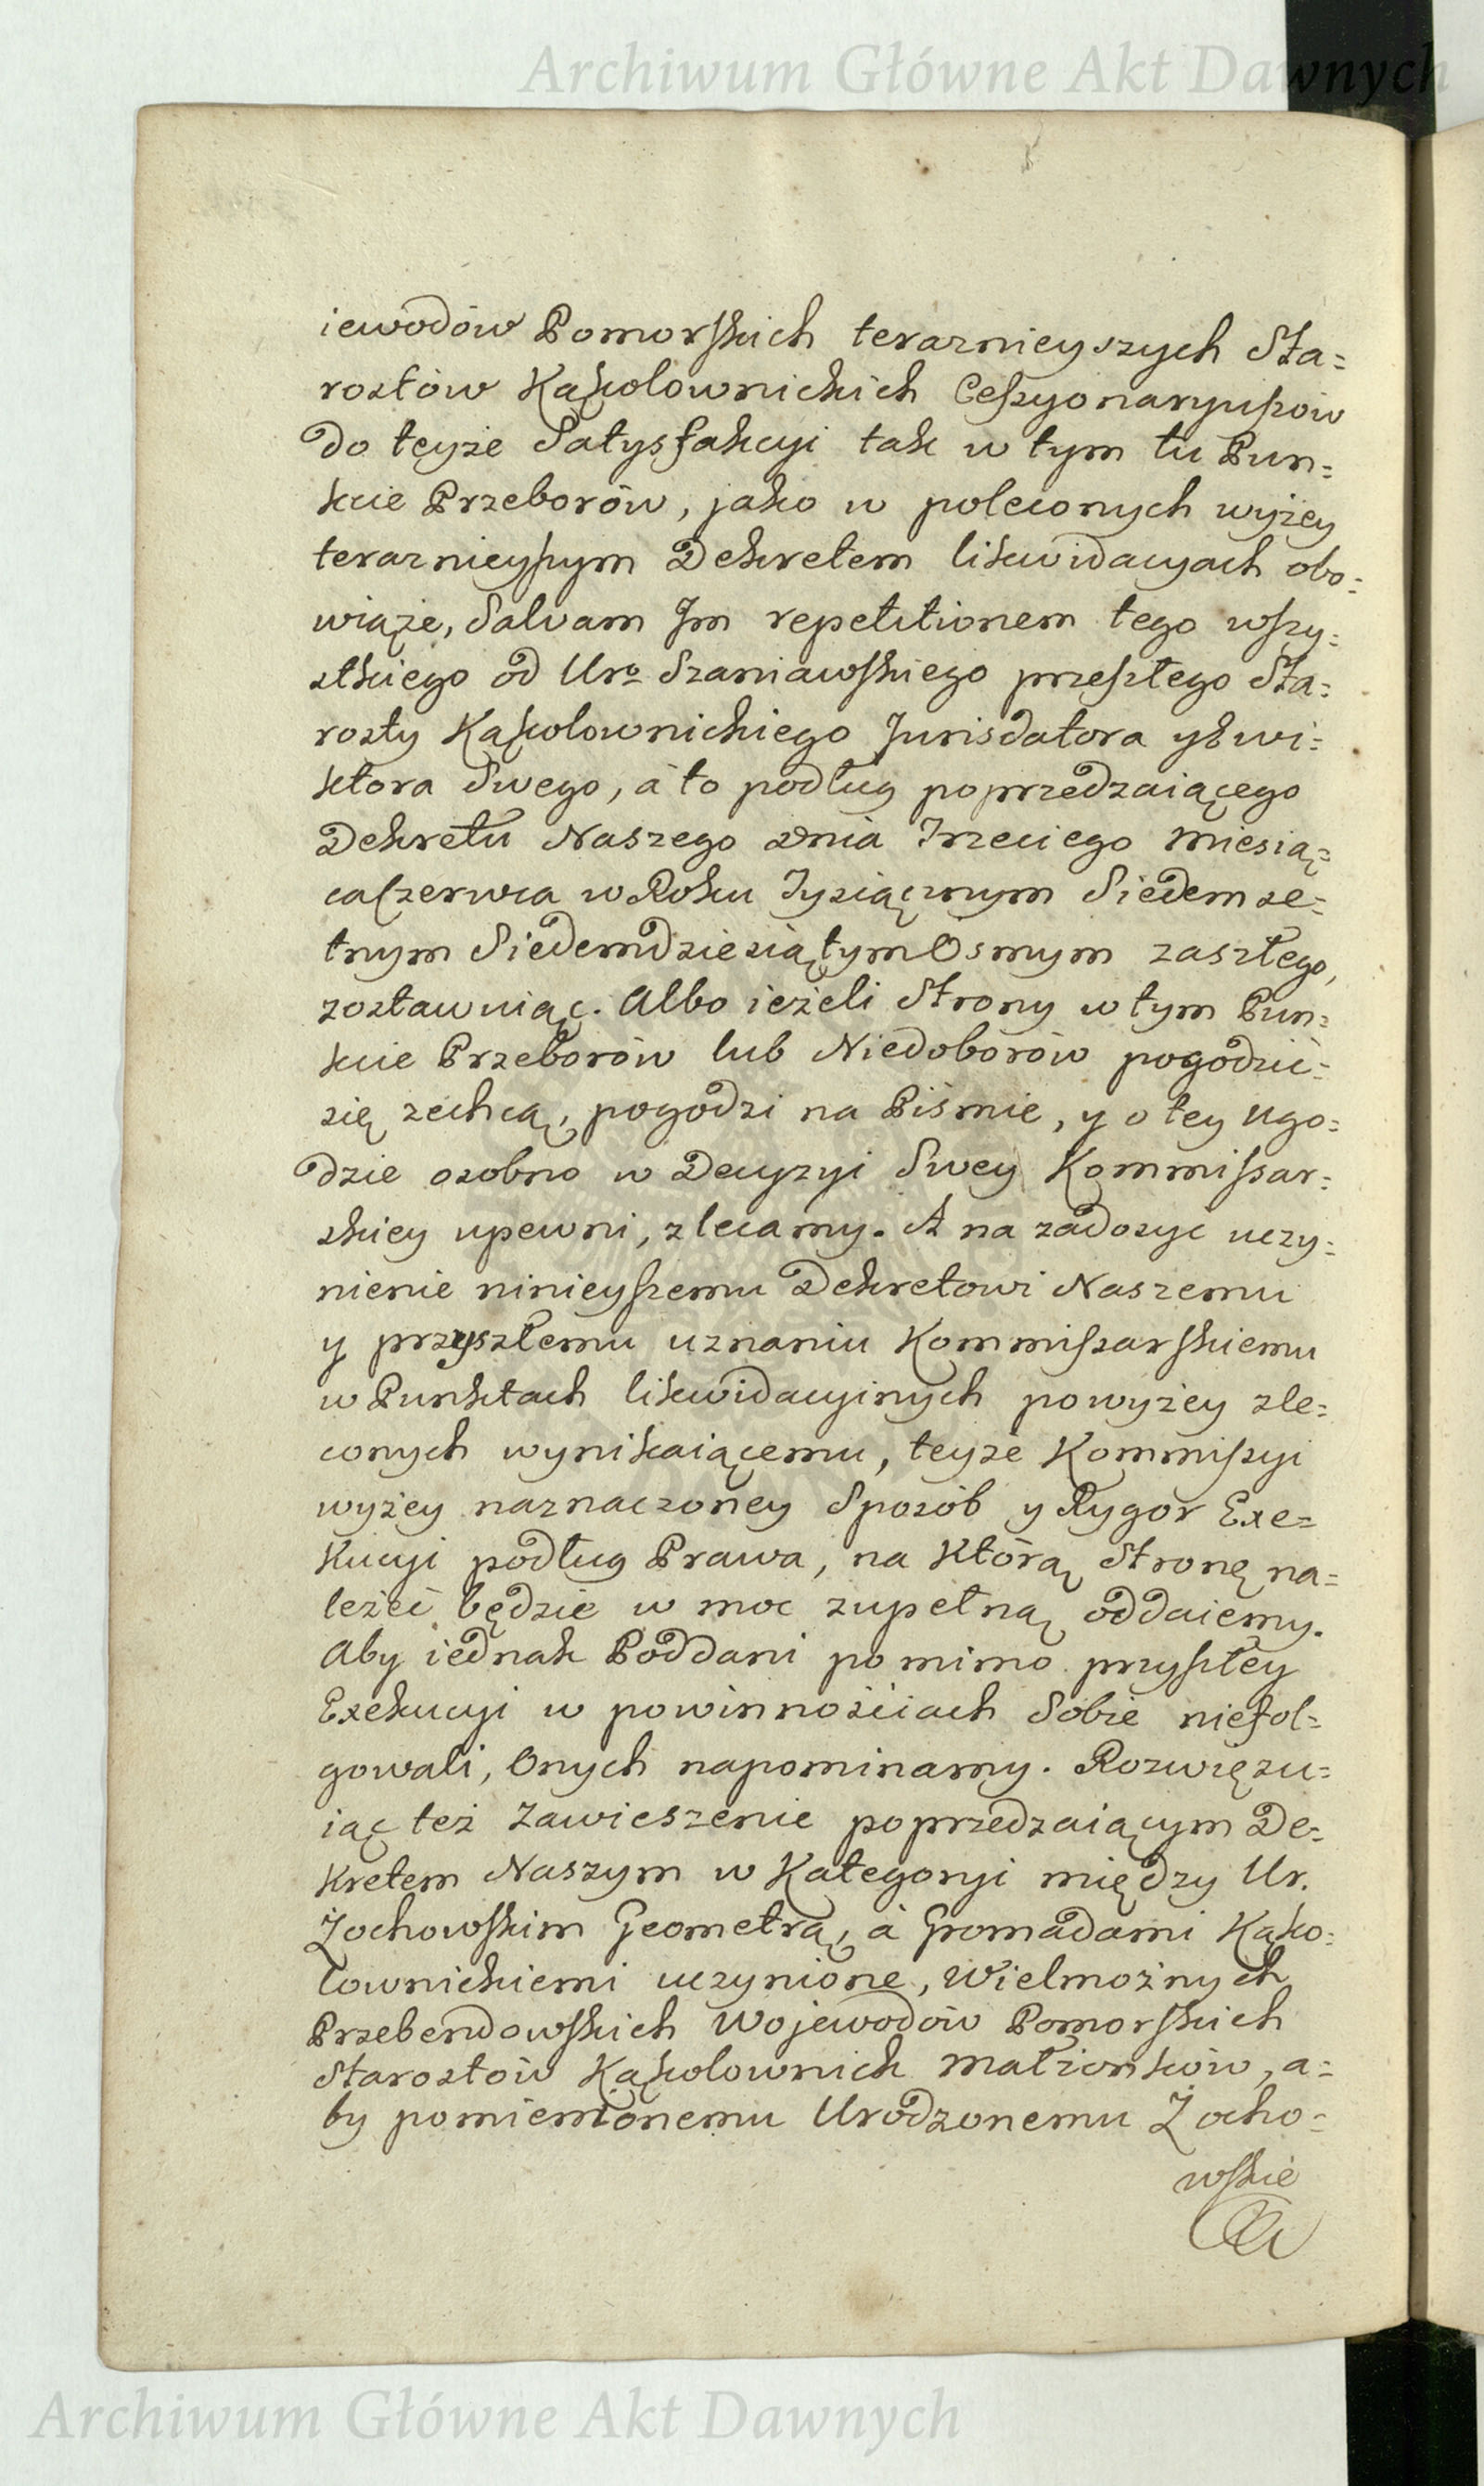 Archiwum Główne Akt Dawnych
iewodów Pomorskich teraznieyszych Sta=
rostów Kąkolownickich Cessyonaryuszów
do teyże Satysfakcyi tak w tym tu Pun=
kcie Przeborów, jako w poleconych wyżey
teraznieyszym Dekretem likwidacyach obo=
wiąże, Salvam Im repetitionem tego wszy=
stkiego od Uro Szaniawskiego przeszłego Sta=
rosty Kąkolownickiego Jurisdatora y Ewi=
ktora Swego, á to podług poprzedzaiącego
Dekretu Naszego dnia Trzeciego Miesią=
ca Czerwca w Roku Tysiącznym Siedemse=
tnym Siedemdziesiątym Osmym zaszłego,
zostawuiąc. Albo ieżeli Strony w tym Pun=
kcie Przeborów lub Niedoborów pogodzić=
się zechcą, pogodzi na Piśmie, y o tey Ugo=
dzie osobno w Decyzyi Swey Kommissar=
skiey upewni, zlecamy. A na zadosyc uczy=
nienie ninieyszemu Dekretowi Naszemu
y przyszłemu uznaniu Kommissarskiemu
w Punktach likwidacyinych powyżey zle=
conych wynikaiącemu, teyże Kommissyi
wyżey naznaczoney Sposób y Rygor Exe=
kucyi podług Prawa, na którą Stronę na=
leżeć będzie w moc zupełną oddaiemy.
Aby iednak Poddani pomimo przyszłey
Exekucyi w powinnościach Sobie niefol=
gowali, Onych napominamy. Rozwięzu=
iąc też Zawieszenie poprzedzaiącym De=
kretem Naszym w Kategoryi między Ur.
Żochowskim Geometrą, á Gromadami Kąko=
lownickiemi uczynione, Wielmożnych
Przebendowskich Wojewodów Pomorskich
Starostów Kąkolownick Małżonków, a=
by pomienionemu Urodzonemu Żocho=
wskie
Archiwum Główne Akt Dawnych